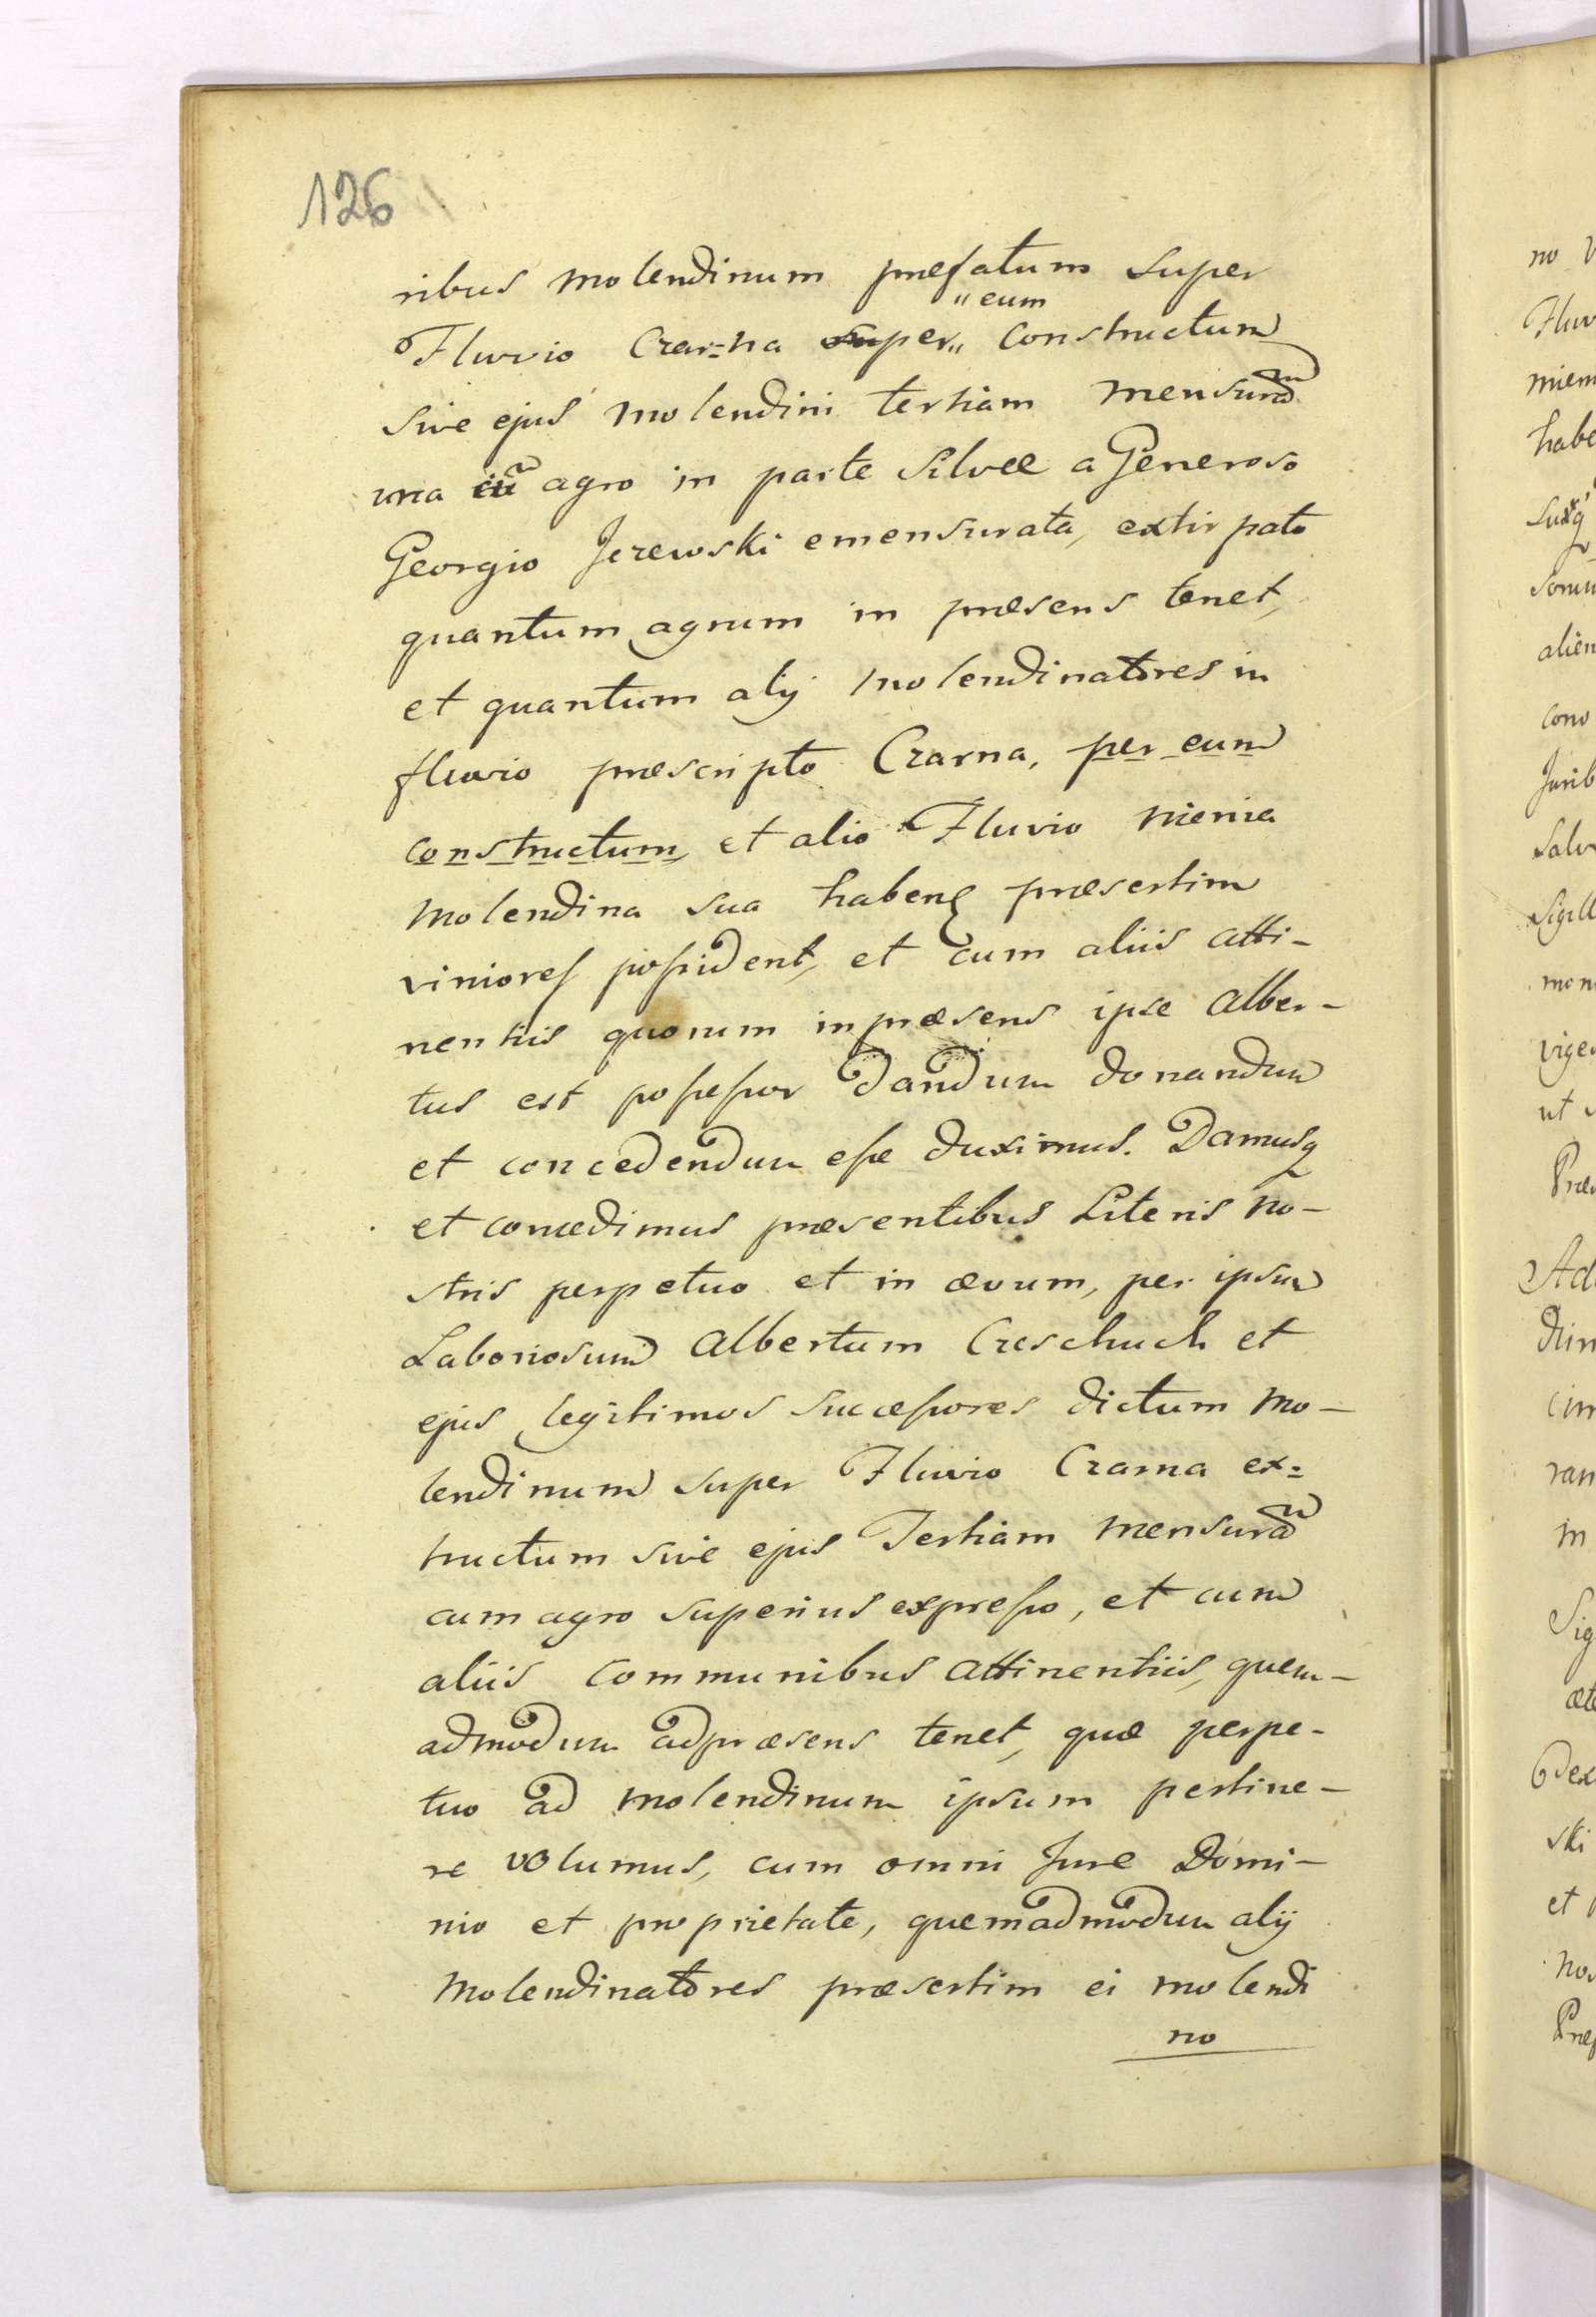 126
ribus molendinum præfatum super
"eum
Fluvio Czar=na super" constructum
sive ejus molendini tertiam mensuram
una cũ agro in parte silvæ a Generoso
Georgio Jezewski emensurata, extirpato
quantum agrum in præsens tenet,
et quantum alij molendinatores in
fluvio præscripto Czarna, per eum
constructum, et alio Fluvio
molendina sua habenẽ præsertim
viniores possident, et cum aliis atti-
nentiis quorum in præsens ipse Alber-
tus est possessor dandum donandum
et concedendum esse duximus. Damusq
et concedimus præsentibus Literis no-
stris perpetuo et in ævum, per ipsum
Laboriosum Albertum Creschuch et
ejus legitimos successores dictum mo-
lendinum super Fluvio Czarna ex=
tructum sive ejus Tertiam mensuram
cum agro superius expresso, et cum
aliis communibus attinentiis, quem-
admodum ad præsens tenet, quæ perpe-
tuo ad molendinum ipsum pertine-
re volumus, cum omni Jure Domi-
nio et proprietate, quemadmodum alij
Molendinatores præsertim ei molendi
no